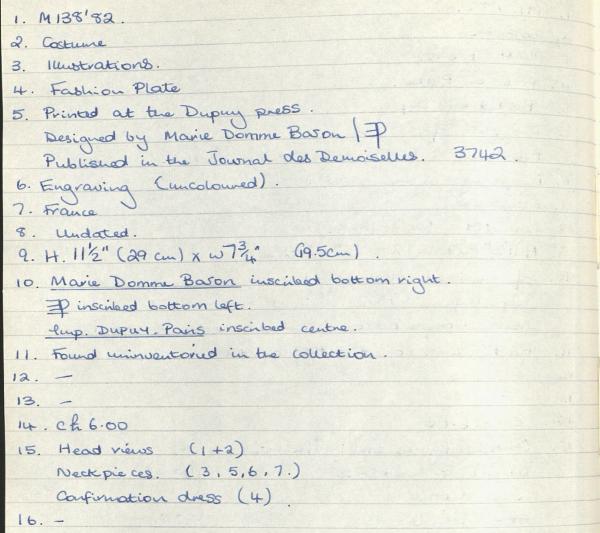 1. M138'82.
2. Costume
3. Illustrations.
4. Fashion Plate
5. Printed at the Dupuy press.
Designed by Marie Domme Bason /
Published in the Journal des Demoiselles. 3742.
6. Engraving (uncoloured).
7. France
8. Undated.
9. H. 11½" (29 cm) x W 7¾" (19.5cm).
10. Marie Domme Bason inscribed bottom right.
inscribed bottom left.
Imp. Dupuy. Paris inscribed centre.
11. Found uninventoried in the collection.
12. —
13. —
14. Ch 6.00
15. Head views (1+2)
Neckpieces. (3, 5, 6, 7.)
Confirmation dress (4)
16. —